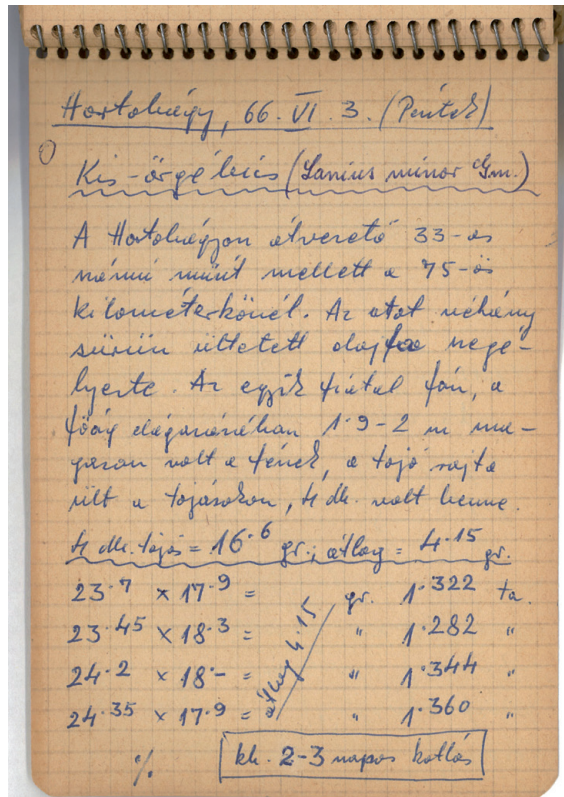 Hortobágy, 66. VI. 3. (Péntek)
Kis-őrgébics (Lanius minor Gm.)
A Hortobágyon átvezető 33-as
számú műút mellett a 75-ös
kilométerkőnél. Az utat néhány
sűrűn ültetett olajfa szegé-
lyezte. Az egyik fiatal fán, a
főág elágazásában 1.9-2 m ma-
gasan volt a fészek, a tojó rajta
ült a tojásokon, 4 db. volt benne.
4 db. tojás = 16.6 gr.; átlag = 4.15 gr.
23.7 × 17.9 = gr. 1.322 ta.
23.45 × 18.3 = " 1.282 "
24.2 × 18.- = " 1.344 "
24.35 × 17.9 = " 1.360 "
átlag 4.15
%. kb. 2-3 napos kotlás